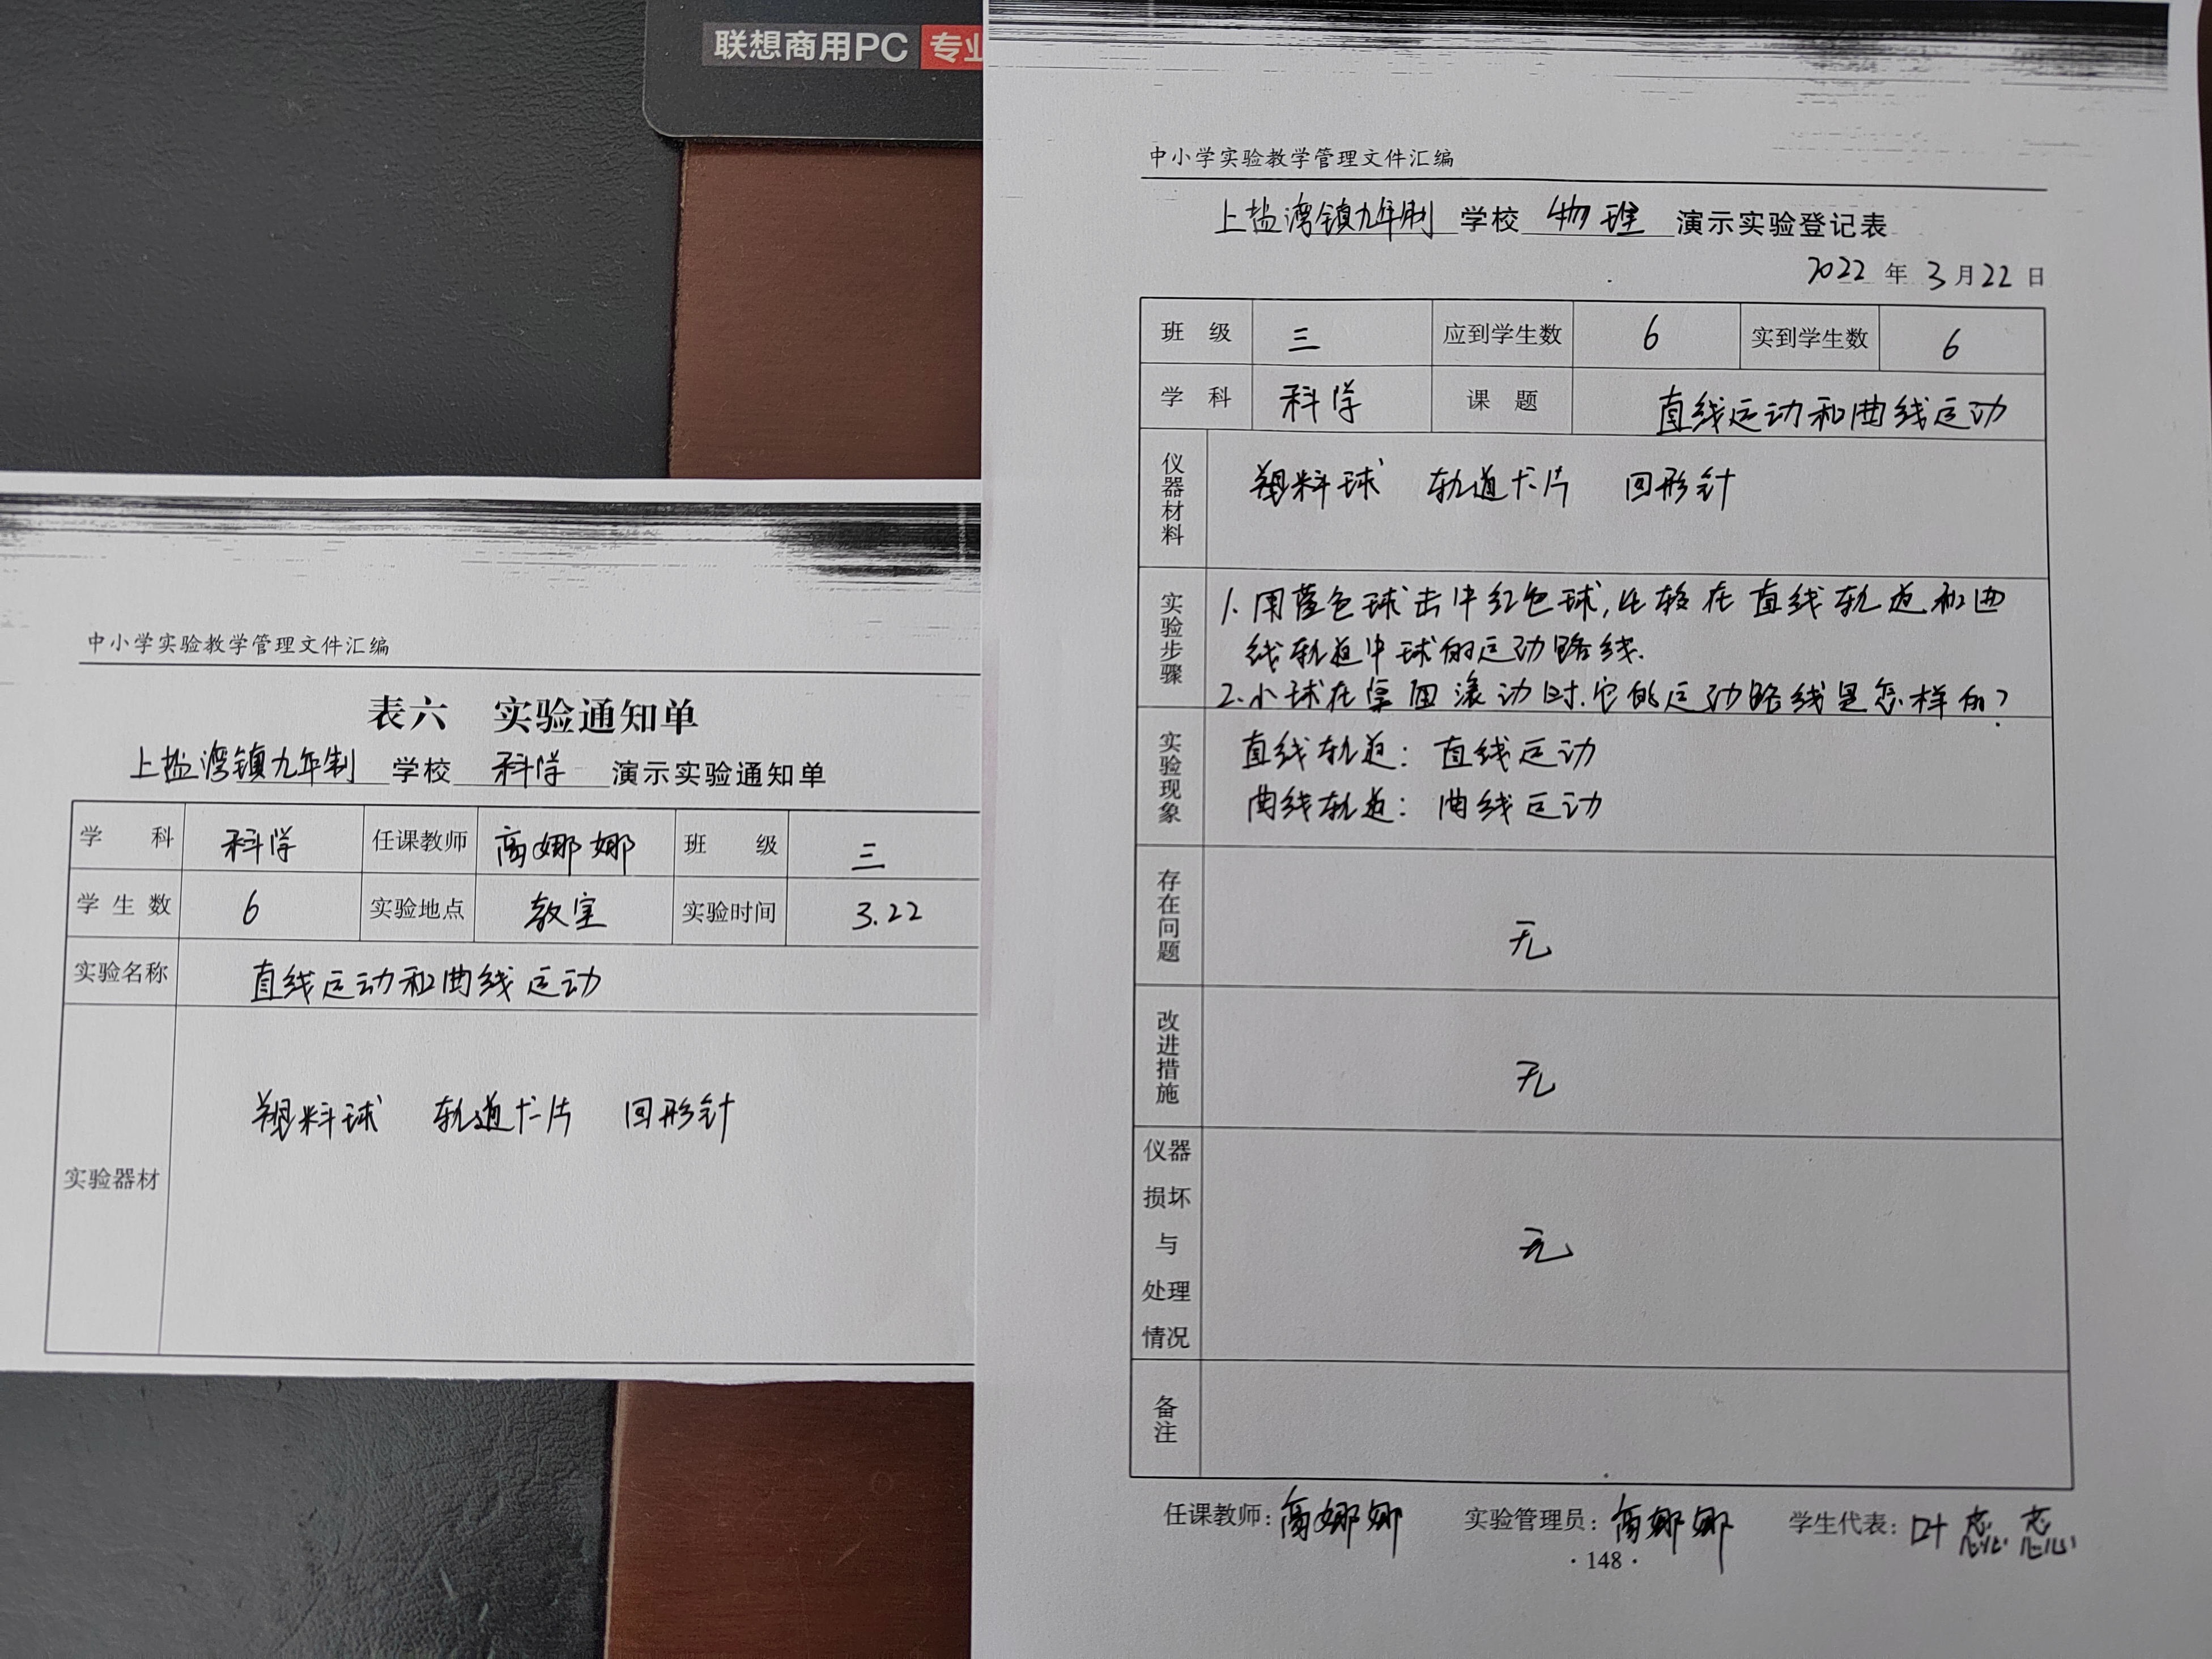 联想商用PC 专业
中小学实验教学管理文件汇编
表六 实验通知单
上盐湾镇九年制 学校 科学 演示实验通知单
学 科 科学 任课教师 高娜娜 班 级 三
学生数 6 实验地点 教室 实验时间 3.22
实验名称 直线运动和曲线运动
实验器材 塑料球 轨道卡片 回形针
中小学实验教学管理文件汇编
上盐湾镇九年制 学校 物理 演示实验登记表
2022 年 3 月 22 日
班 级 三 应到学生数 6 实到学生数 6
学 科 科学 课 题 直线运动和曲线运动
仪器材料 塑料球 轨道卡片 回形针
实验步骤 1. 用蓝色球击中红色球,比较在直线轨道和曲
线轨道中球的运动路线.
2.小球在桌面滚动时.它的运动路线是怎样的?
实验现象 直线轨道: 直线运动
曲线轨道: 曲线运动
存在问题 无
改进措施 无
仪器
损坏
与
处理
情况
无
备注
任课教师: 高娜娜 实验管理员: 高娜娜 学生代表: 叶
·148·